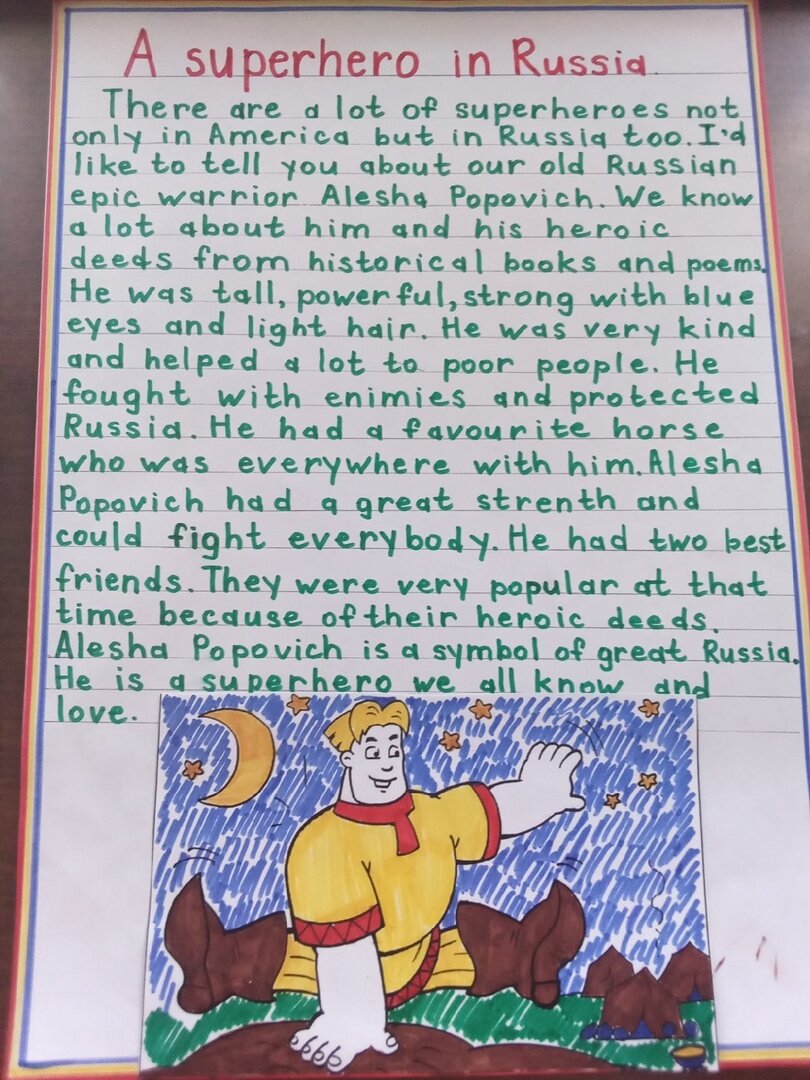 A superhero in Russia
There are a lot of superheroes not
only in America but in Russia too. I'd
like to tell you about our old Russian
epic warrior Alesha Popovich. We know
a lot about him and his heroic
deeds from historical books and poems.
He was tall, powerful, strong with blue
eyes and light hair. He was very kind
and helped a lot to poor people. He
fought with enimies and protected
Russia. He had a favourite horse
who was everywhere with him. Alesha
Popovich had a great strenth and
could fight everybody. He had two best
friends. They were very popular at that
time because of their heroic deeds.
Alesha Popovich is a symbol of great Russia.
He is a superhero we all know and
love.